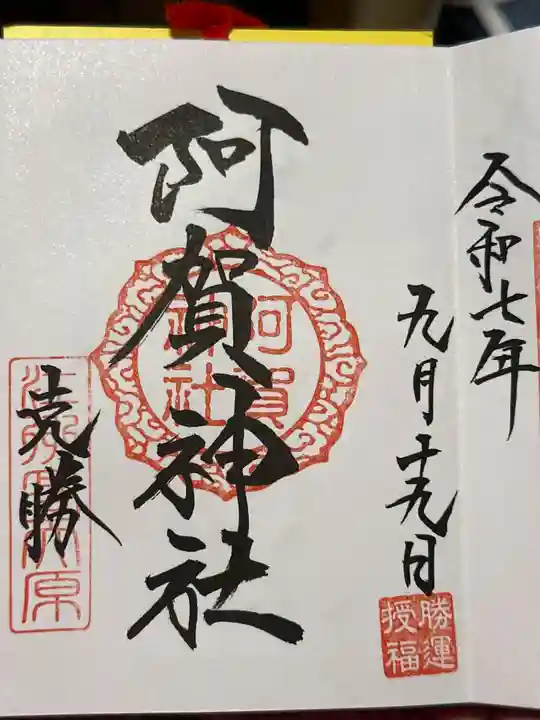 令和七年
九月十九日
勝運
授福
阿賀神社
阿賀
神社
克勝